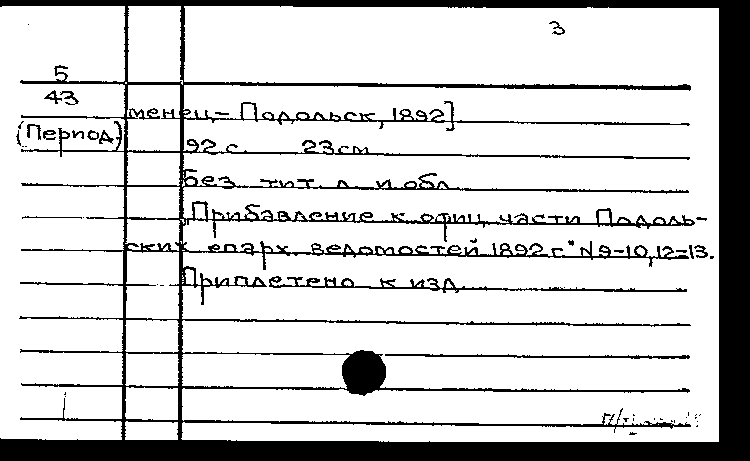 3
5
43
(Период.)
менец-Подольск, 1892].
92 с. 23 см.
Без тит. л. и обл.
„Прибавление к офиц. части Подоль-
ских епарх. ведомостей 1892 г." № 9-10, 12-13.
Приплетено к изд.